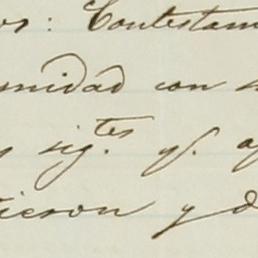 os: Contestam
midad con s
sig.tes q.e
icron y d